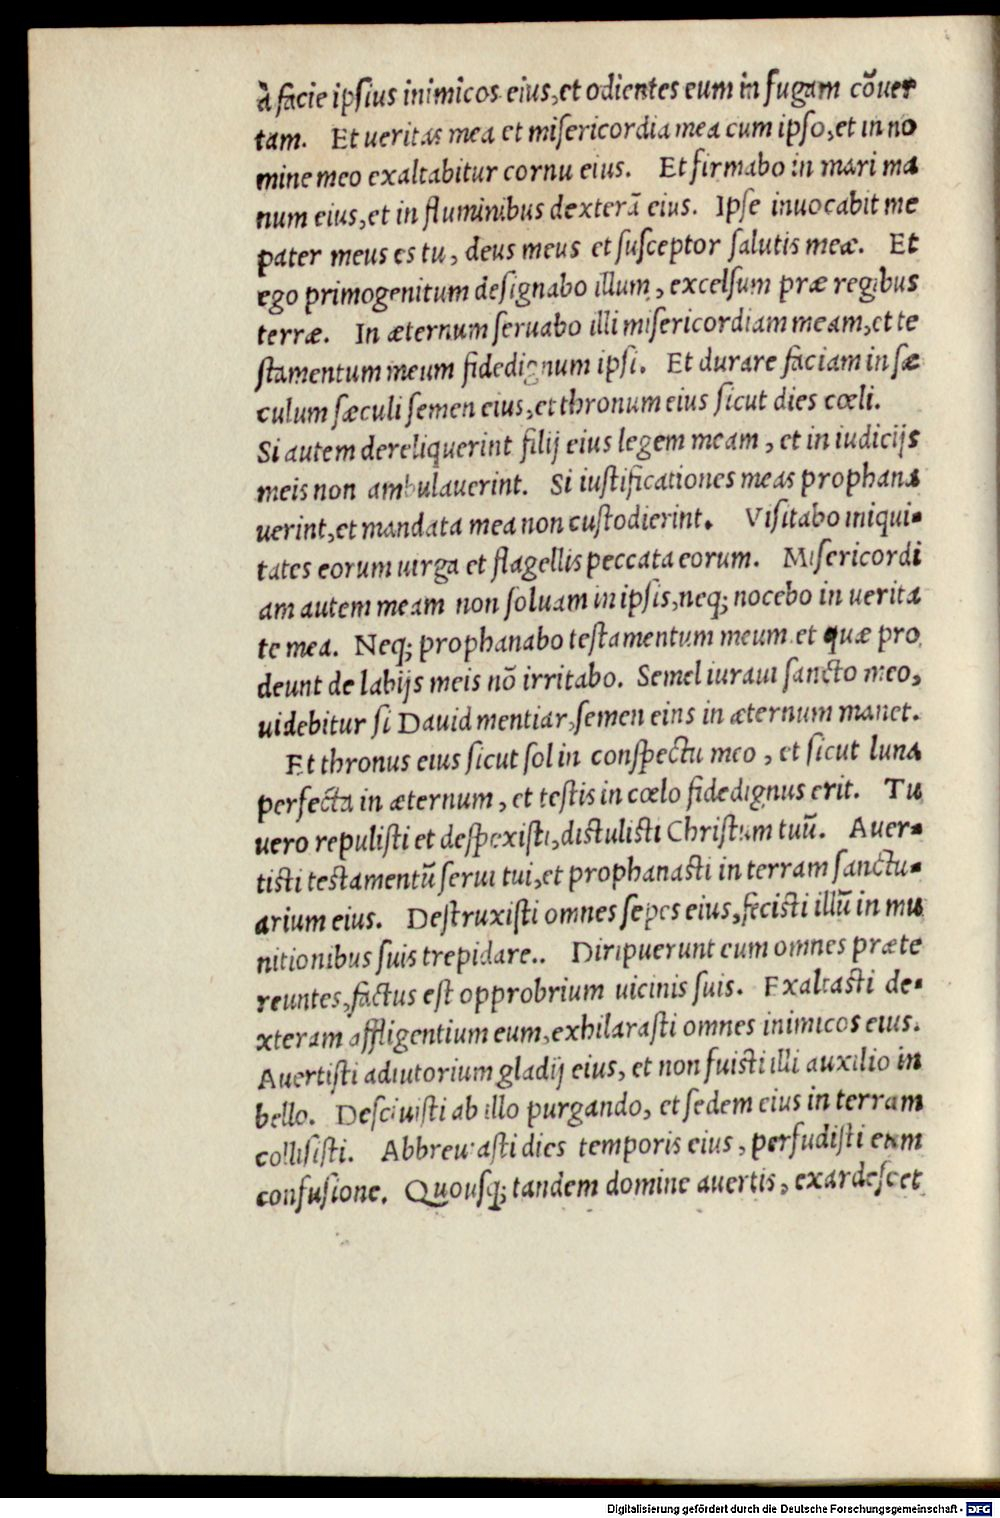 à facie ipsius inimicos eius, et odientes eum in fugam cõuer
tam. Et ueritas mea et misericordia mea cum ipso, et in no
mine meo exaltabitur cornu eius. Et firmabo in mari ma
num eius, et in fluminibus dexterã eius. Ipse inuocabit me
pater meus es tu, deus meus et susceptor salutis meæ. Et
ego primogenitum designabo illum, excelsum præ regibus
terræ. In æternum seruabo illi misericordiam meam, et te
stamentum meum fidedignum ipsi. Et durare faciam in sæ
culum sæculi semen eius, et thronum eius sicut dies cœli.
Si autem dereliquerint filij eius legem meam, et in iudicijs
meis non ambulauerint. Si iustificationes meas prophana
uerint, et mandata mea non custodierint. Visitabo iniqui-
tates eorum uirga et flagellis peccata eorum. Misericordi
am autem meam non soluam in ipsis, neq; nocebo in uerita
te mea. Neq; prophanabo testamentum meum et quæ pro
deunt de labijs meis nõ irritabo. Semel iuraui sancto meo,
uidebitur si Dauid mentiar, semen eins in æternum manet.
Et thronus eius sicut sol in conspectu meo, et sicut luna
perfecta in æternum, et testis in cœlo fidedignus erit. Tu
uero repulisti et despexisti, distulisti Christum tuũ. Auer-
tisti testamentũ serui tui, et prophanasti in terram sanctu-
arium eius. Destruxisti omnes sepes eius, fecisti illũ in mu
nitionibus suis trepidare.. Diripuerunt eum omnes præte
reuntes, factus est opprobrium uicinis suis. Exaltasti de-
xteram affligentium eum, exhilarasti omnes inimicos eius.
Auertisti adiutorium gladij eius, et non fuisti illi auxilio in
bello. Desciuisti ab illo purgando, et sedem eius in terram
collisisti. Abbreuiasti dies temporis eius, perfudisti eum
confusione. Quousq; tandem domine auertis, exardescet
Digitalisierung gefördert durch die Deutsche Forschungsgemeinschaft - DFG